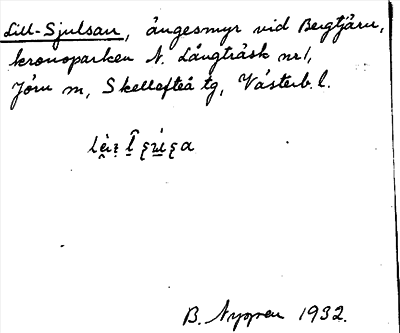 Lill-Sjulsan, ängesmyr vid Bergtjärn,
kronoparken N. Långträsk nr 1,
Jörn m, Skellefteå tg, Västerb. l.
B. Nyrren 1932.